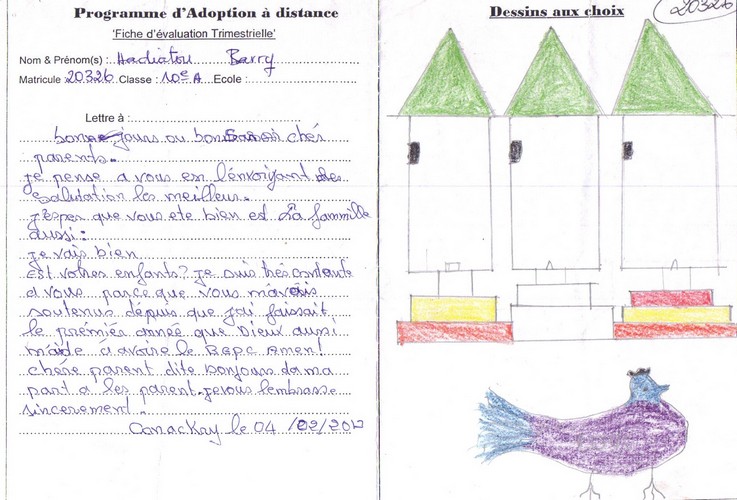 Programme d'Adoption à distance
'Fiche d'évaluation Trimestrielle'
Nom & Prénom(s) : Hadiatou Barry
Matricule 20326 Classe : 10e A Ecole :
Lettre à :
jours ou chér
parents.
je pense a vous en l'envoiyant des
Salutation les meilleur.
j'Esper que vous ete bien est La fammille
aussi.
je vais bien
Est votres enfants? je suis très contente
a vous parce que vous m'avéis
soutenus dépuis que j'ai faissait
le prémiér année que Dieux aussi
m'aide à avoire le B.E.P.C Amen!
chére parent dite bonjours da ma
part a les parent. je vous l'embrasse
sincerement.
Conackry le 04 /02/20
Dessins aux choix
20326